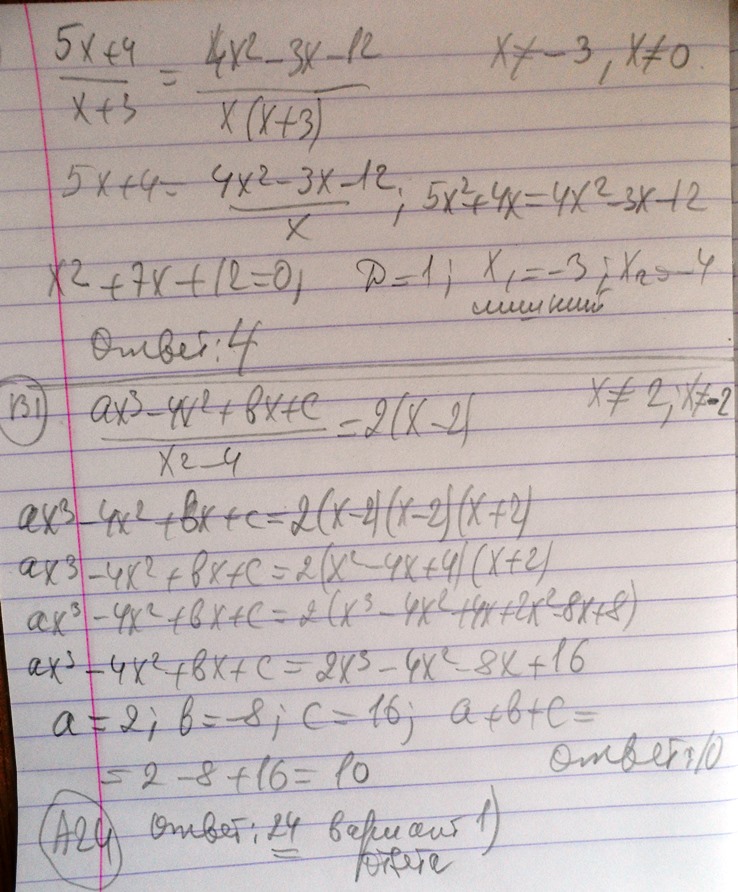 (5x+4)/(x+3) = (4x²-3x-12)/(x(x+3)) x≠-3, x≠0.
5x+4 = (4x²-3x-12)/x; 5x²+4x=4x²-3x-12
x²+7x+12=0; D=1; x₁=-3; x₂=-4
лишний
Ответ: 4
В1 (ax³-4x²+bx+c)/(x²-4) = 2(x-2) x≠2; x≠-2
ax³-4x²+bx+c=2(x-2)(x-2)(x+2)
ax³-4x²+bx+c=2(x²-4x+4)(x+2)
ax³-4x²+bx+c=2(x³-4x²+4x+2x²-8x+8)
ax³-4x²+bx+c=2x³-4x²-8x+16
a=2; b=-8; c=16; a+b+c=
=2-8+16=10 Ответ: 10
А24 Ответ: 24 вариант 1)
ответа